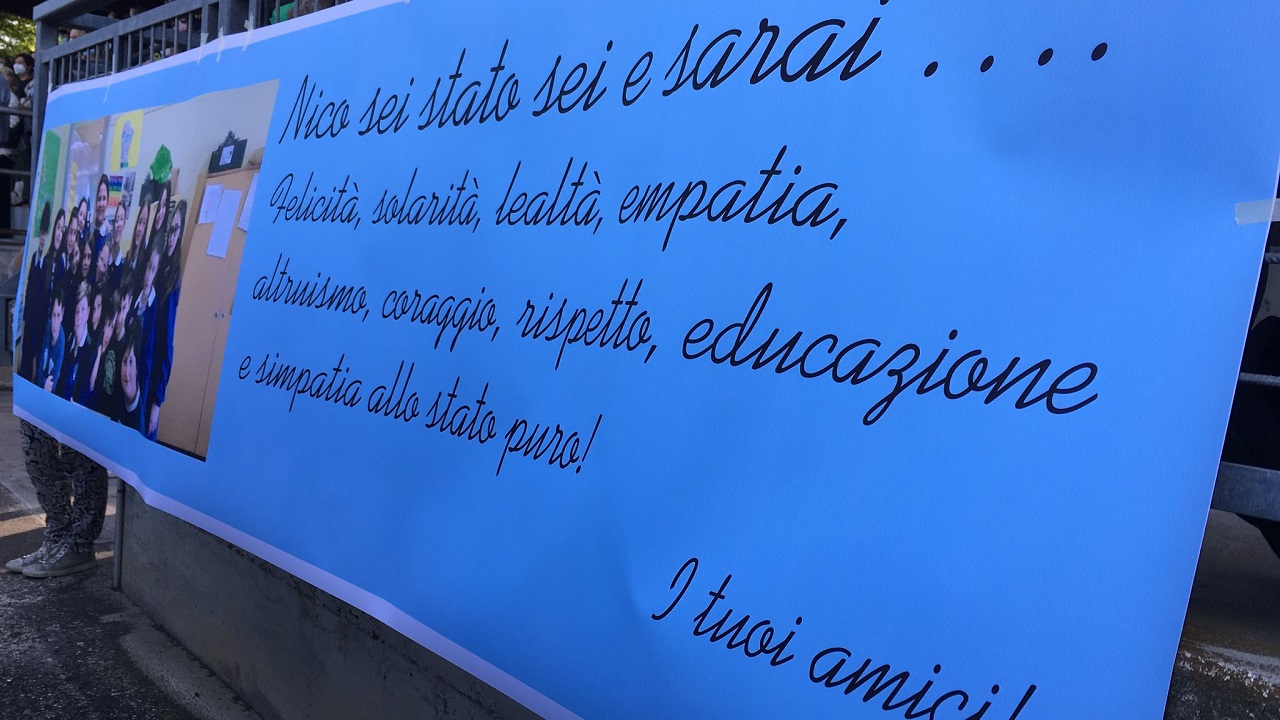 Nico sei stato sei e sarai . . . .
Felicità, solarità, lealtà, empatia,
altruismo, coraggio, rispetto, educazione
e simpatia allo stato puro!
I tuoi amici!